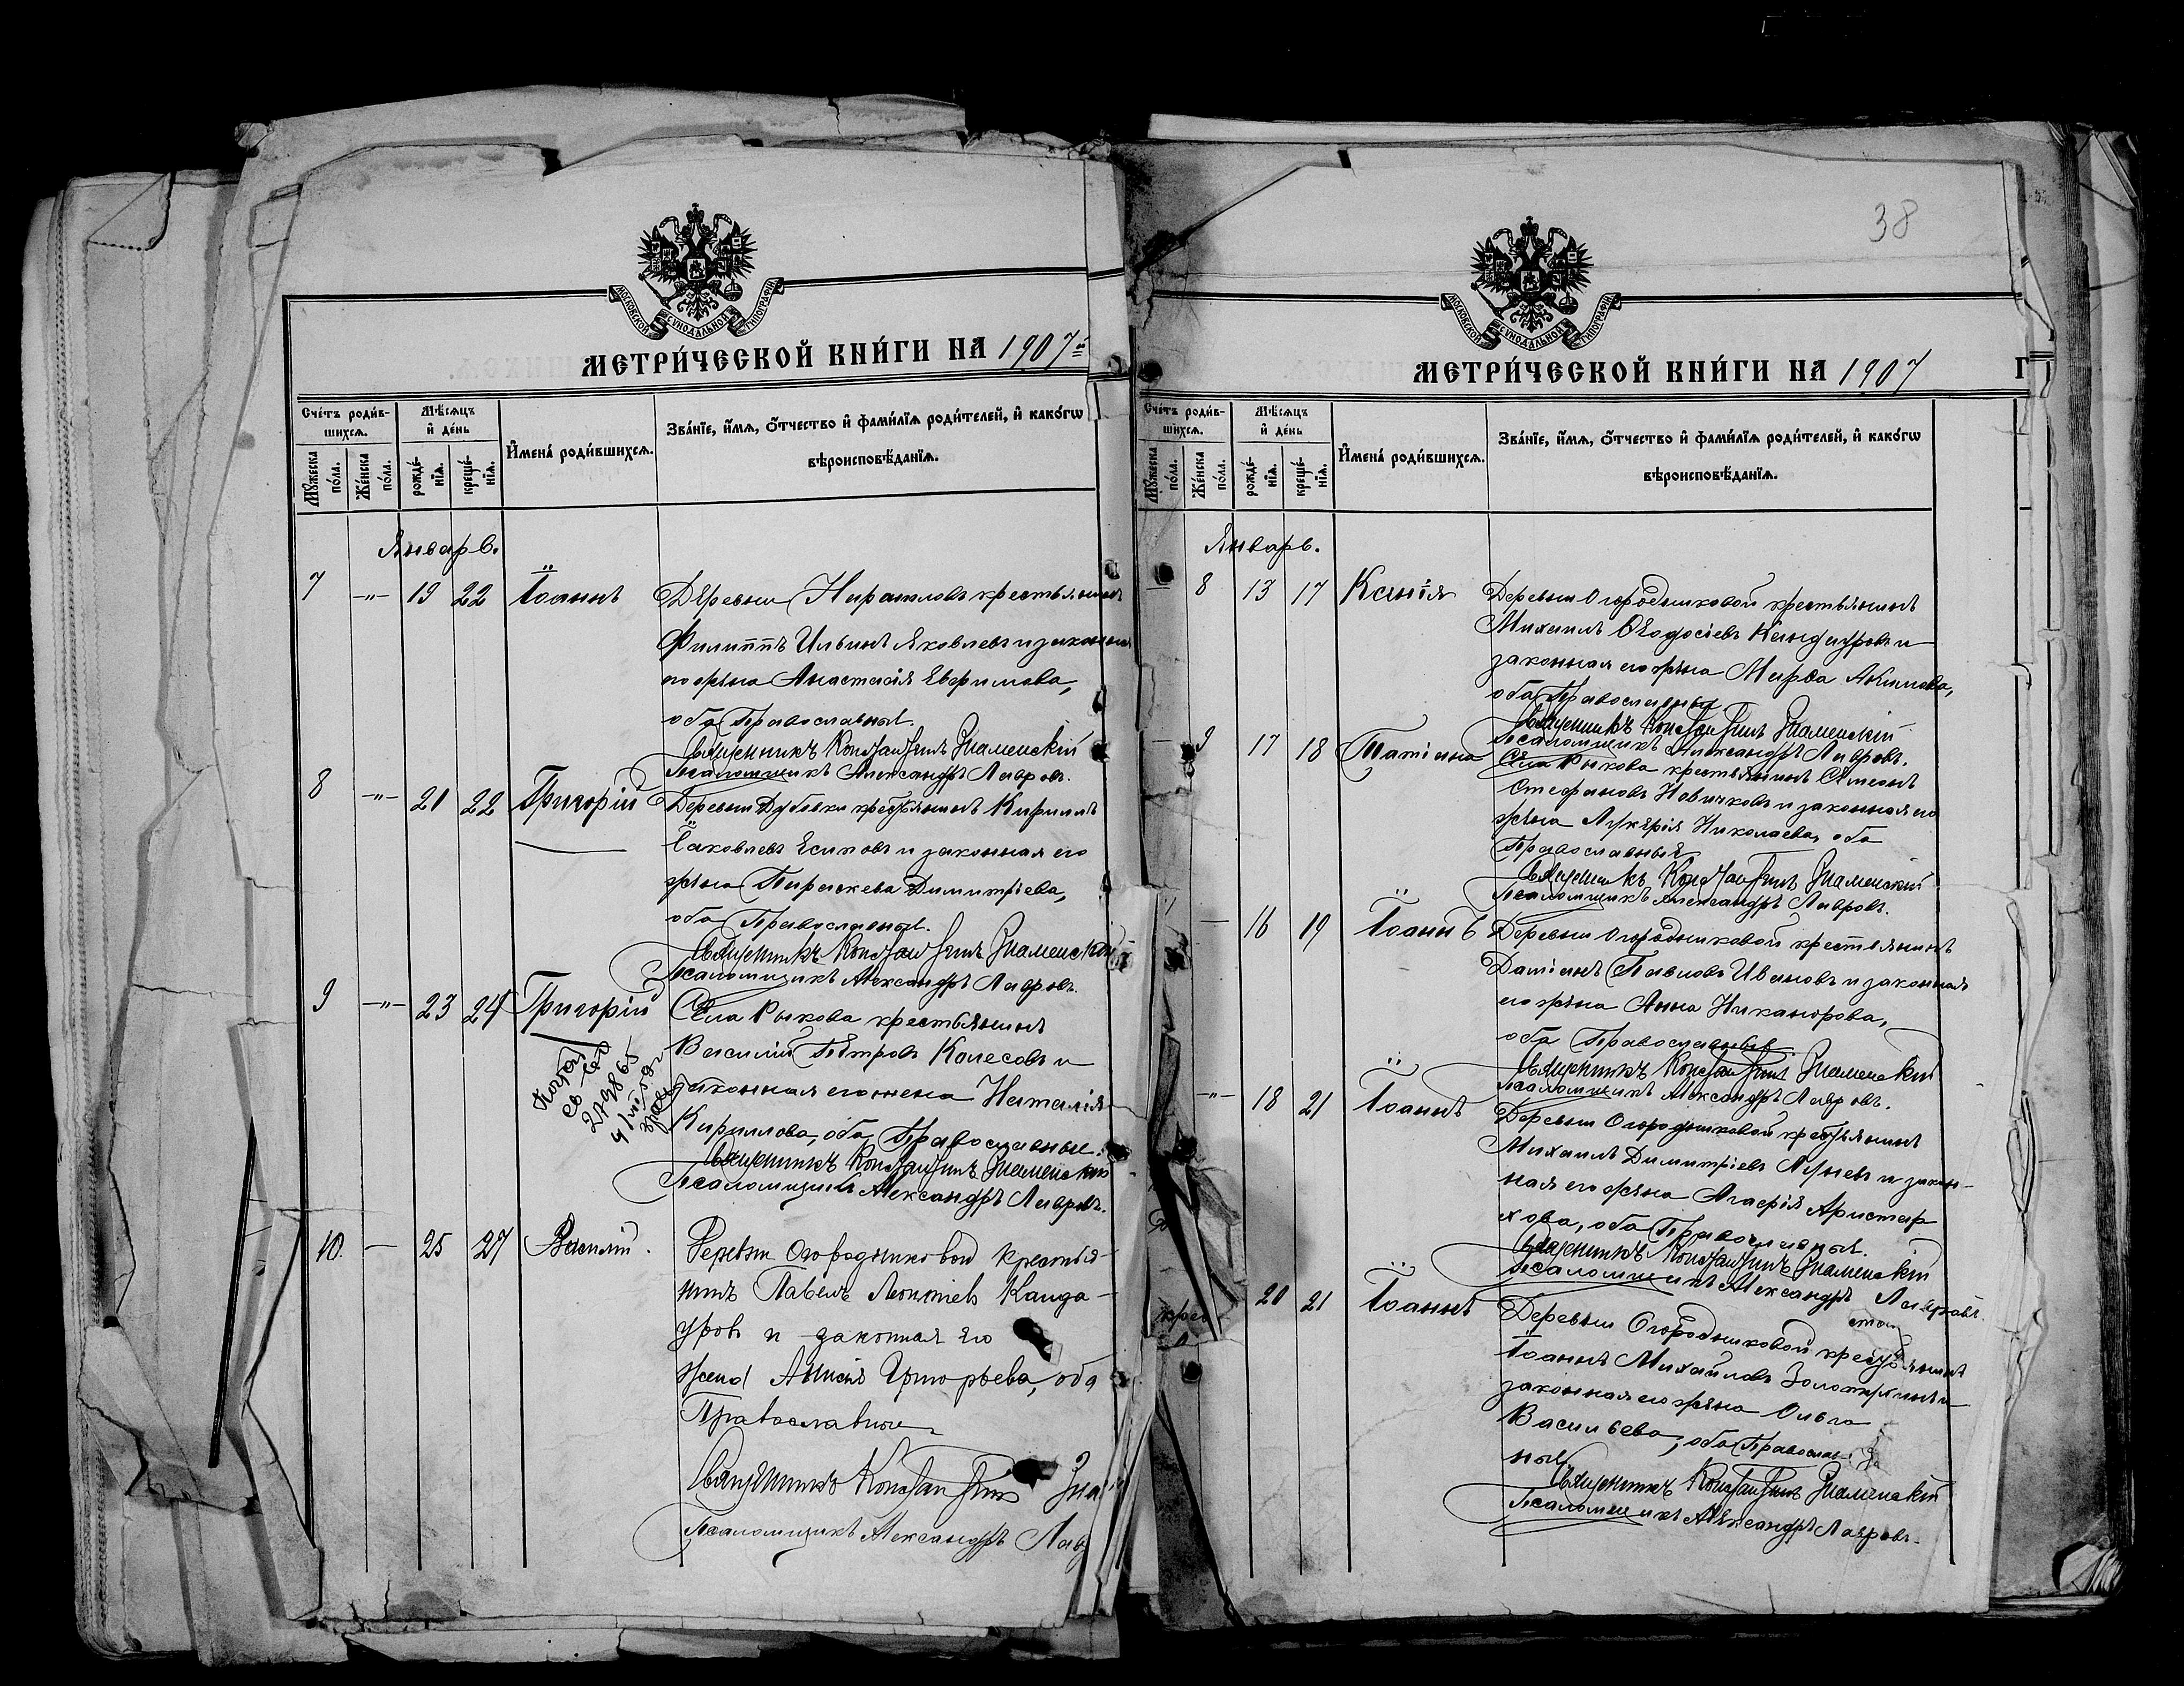 38
МОСКОВСКОЙ СѴНОДАЛЬНОЙ ТИПОГРАФІИ
МЕТРИ́ЧЕСКОЙ КНИ́ГИ НА 1907й
Сче́тъ роди́в-
шихсѧ.
Мꙋ́жеска по́ла.
Же́нска по́ла.
Мѣ́сѧцъ
и҆ де́нь
рожде́-
нїѧ.
креще́-
нїѧ.
И҆мена̀ роди́вшихсѧ.
Зва́нїе, и҆́мѧ, ѻ҆́тчество и҆ фами́лїѧ роди́телей, и҆ како́гѡ
вѣроисповѣ́данїѧ.
Январь.
7 -"- 19 22 Іоаннъ Деревни крестьянинъ
Филиппъ Ильинъ Яковлевъ и законная
его жена Анастасія Евфимова,
оба Православные.
Священникъ Константинъ Знаменскій
Псаломщикъ Александръ Лавровъ.
8 -"- 21 22 Григорій Деревни Дубовки крестьянинъ Кириллъ
Іаковлевъ Есиповъ и законная его
жена Параскева Димитріева,
оба Православные.
Священникъ Константинъ Знаменскій
Псаломщикъ Александръ Лавровъ.
9 -"- 23 24 Григорій Села Рыкова крестьянинъ
Василій Петровъ Колесовъ и
законная его жена Наталія
Кириллова, оба Православные.
Священникъ Константинъ Знаменскій
Псаломщикъ Александръ Лавровъ.
св-во
10. — 25 27 Василій. Деревни Огородниковой крестья-
нинъ Павелъ Леонтіевъ Канда-
уровъ и законная его
жена Анисія Григорьева, оба
Православные
Священникъ Константинъ Зна
Псаломщикъ Александръ Лав
МОСКОВСКОЙ СѴНОДАЛЬНОЙ ТИПОГРАФІИ
МЕТРИ́ЧЕСКОЙ КНИ́ГИ НА 1907 Г
Сче́тъ роди́в-
шихсѧ.
Мꙋ́жеска по́ла.
Же́нска по́ла.
Мѣ́сѧцъ
и҆ де́нь
рожде́-
нїѧ.
креще́-
нїѧ.
И҆мена̀ роди́вшихсѧ.
Зва́нїе, и҆́мѧ, ѻ҆́тчество и҆ фами́лїѧ роди́телей, и҆ како́гѡ
вѣроисповѣ́данїѧ.
Январь.
— 8 13 17 Ксенія Деревни Огородниковой крестьянинъ
Михаилъ Ѳеодосіевъ Кандауровъ и
законная его жена Марѳа Акимова,
оба Православные
Священникъ Константинъ Знаменскій
Псаломщикъ Александръ Лавровъ.
— 9 17 18 Татіана Села Рыкова крестьянинъ Симеонъ
Стефановъ Новичковъ и законная его
жена Лукерія Николаева, оба
Православные
Священникъ Константинъ Знаменскій
Псаломщикъ Александръ Лавровъ.
— 16 19 Іоаннъ Деревни Огородниковой крестьянинъ
Даміанъ Павловъ Ивановъ и законная
его жена Анна Никанорова,
оба Православные
Священникъ Константинъ Знаменскій
Псаломщикъ Александръ Лавровъ.
-"- 18 21 Іоаннъ Деревни Огородниковой крестьянинъ
Михаилъ Димитріевъ и закон-
ная его жена Агафія Аристар
хова, оба Православные.
Священникъ Константинъ Знаменскій
Псаломщикъ Александръ Лавровъ.
20 21 Іоаннъ Деревни Огородниковой крестьянинъ
Іоаннъ Михайловъ Золотухинъ и
законная его жена Ольга
Васильева, оба Православ-
ные
Священникъ Константинъ Знаменскій
Псаломщикъ Александръ Лавровъ.